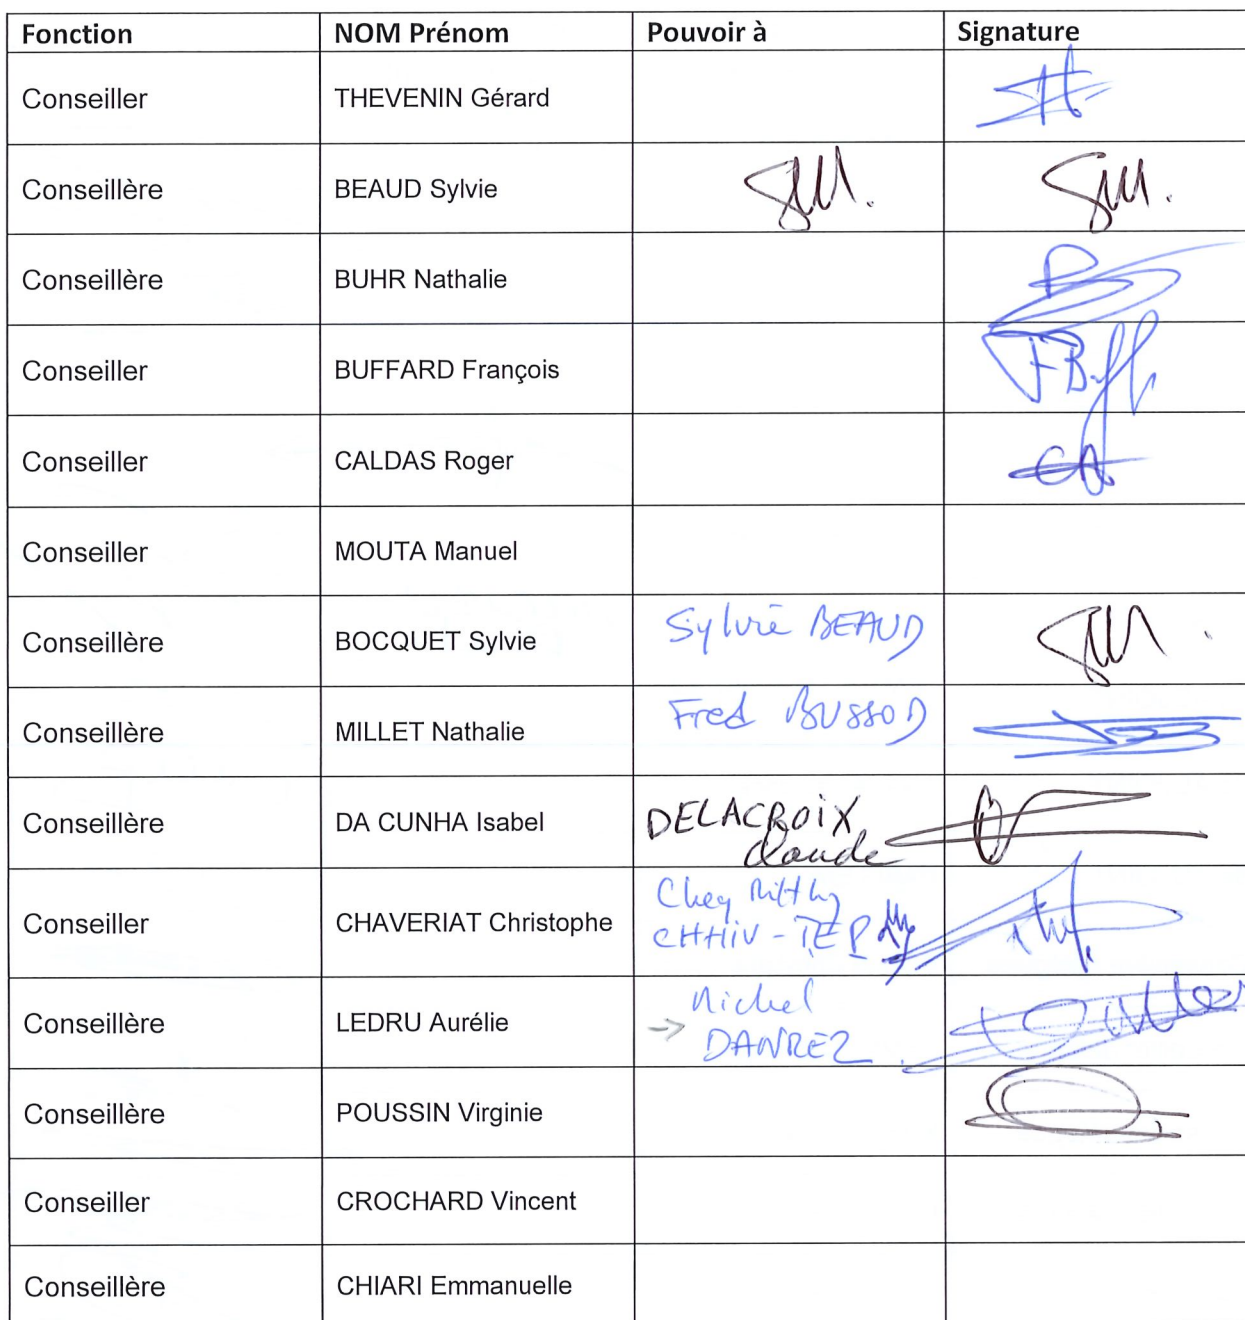 Fonction NOM Prénom Pouvoir à Signature
Conseiller THEVENIN Gérard
Conseillère BEAUD Sylvie
Conseillère BUHR Nathalie
Conseiller BUFFARD François
Conseiller CALDAS Roger
Conseiller MOUTA Manuel
Conseillère BOCQUET Sylvie Sylvie BEAUD
Conseillère MILLET Nathalie Fred BUSSOD
Conseillère DA CUNHA Isabel DELACROIX
Claude
Conseiller CHAVERIAT Christophe Chey Ritthy
CHHIV-TEP
Conseillère LEDRU Aurélie → Michel
DANREZ
Conseillère POUSSIN Virginie
Conseiller CROCHARD Vincent
Conseillère CHIARI Emmanuelle